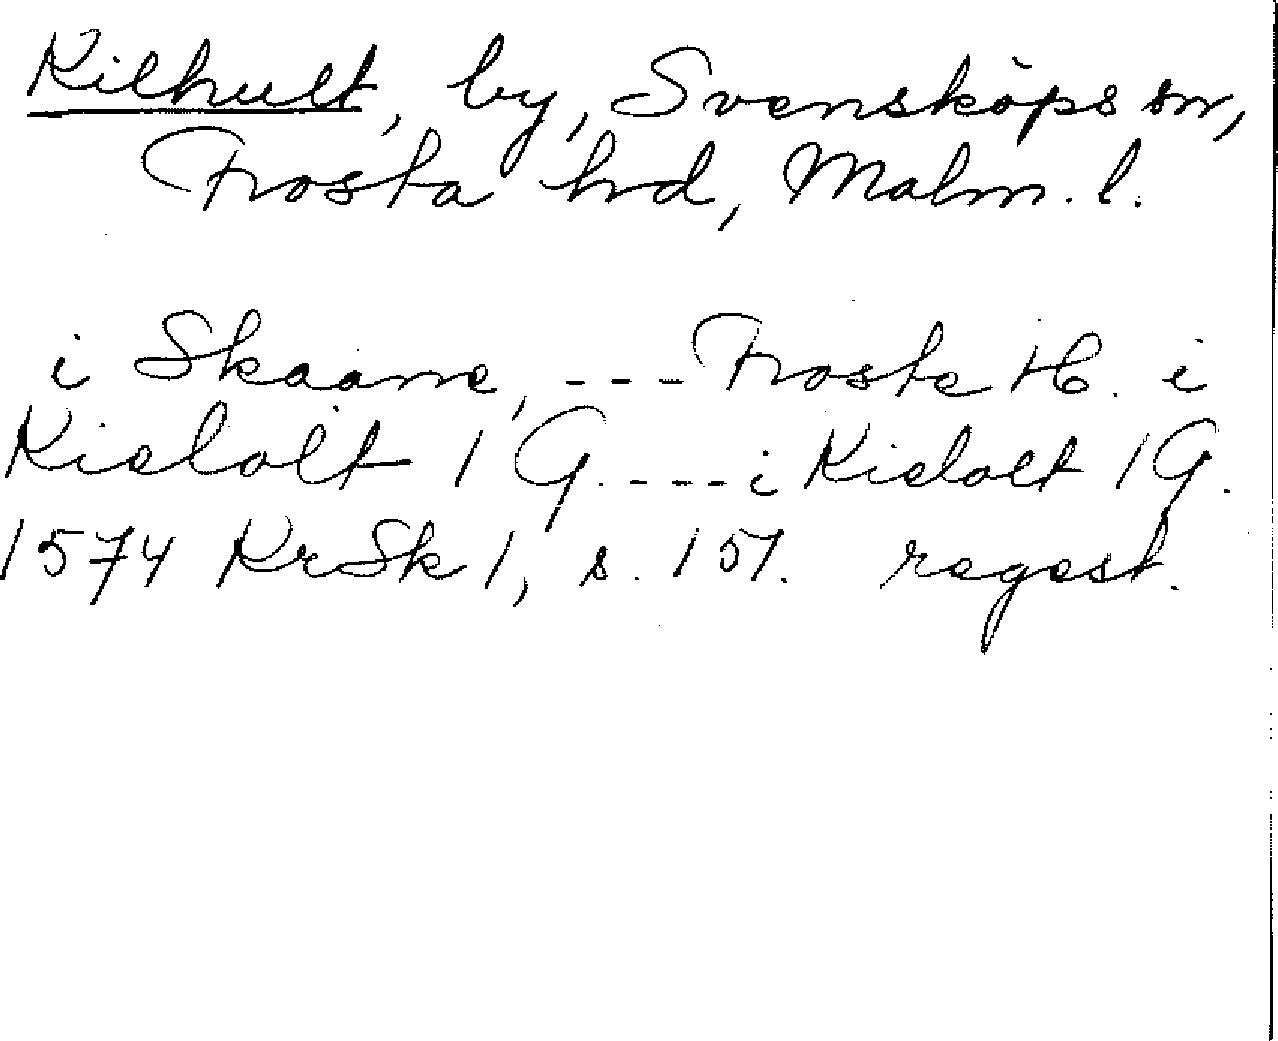 Kilhult, by, Svensköps sn,
Frosta hrd, Malm. l.
i Skaane, --- Froste H. i
Kielolt 1 G. ---- i Kielolt 1 G.
1574 KrSk 1, s. 157. regest.